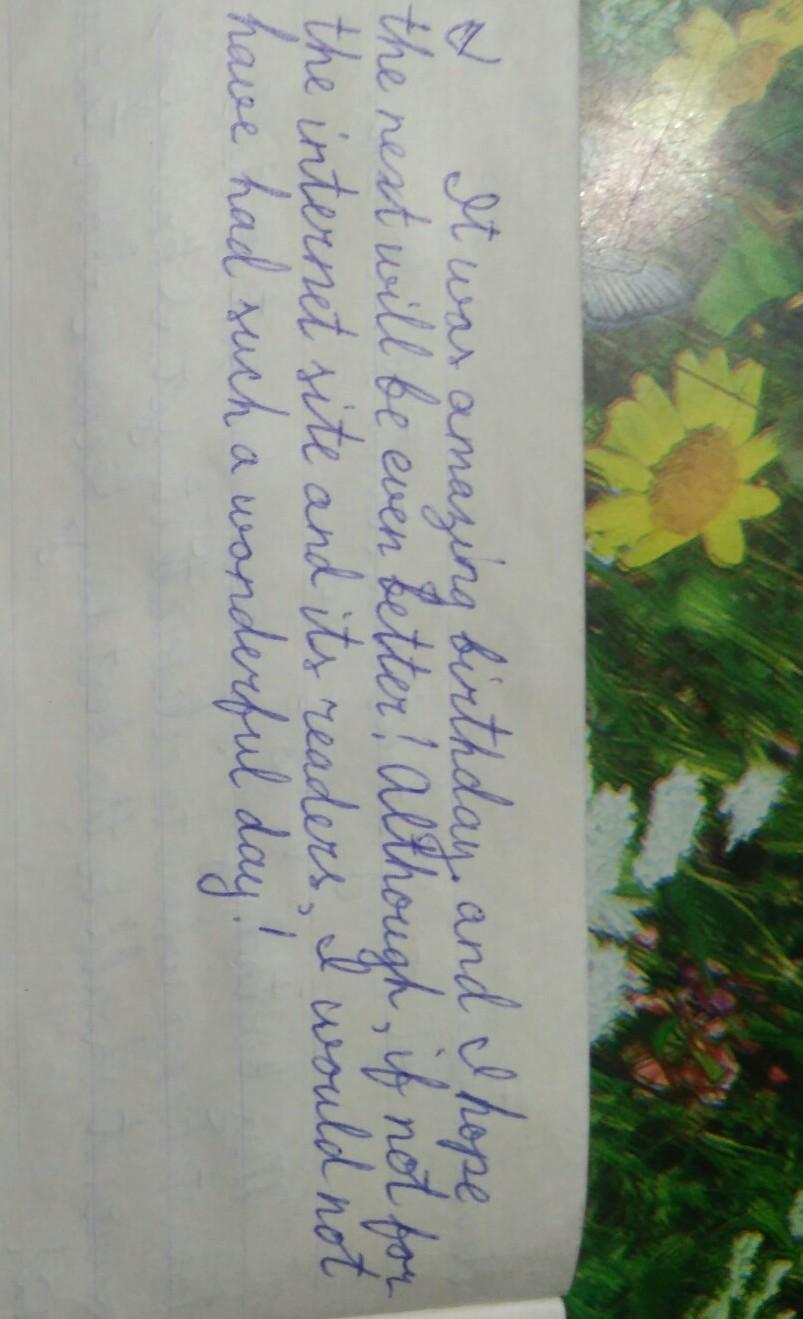 It was amazing birthday, and I hope
the next will be even better! Although, if not for
the internet site and its readers, I would not
have had such a wonderful day!